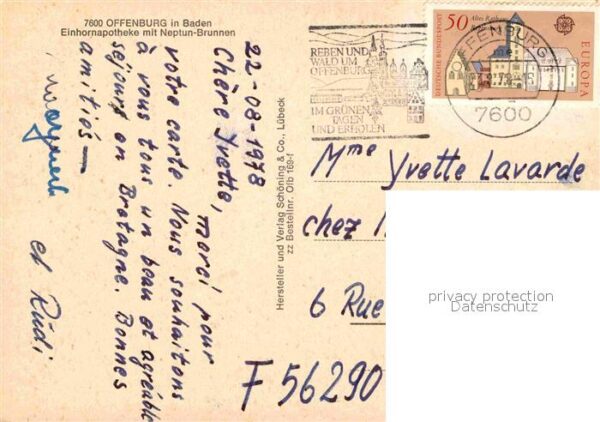 7600 OFFENBURG in Baden
Einhornapotheke mit Neptun-Brunnen
22-08-1978
Chère Yvette, merci pour
votre carte. Nous souhaitons
à vous tous un beau et agréable
séjour en Bretagne. Bonnes
amitiés —
et Rudi
Hersteller und Verlag Schöning & Co., Lübeck
zz Bestellnr. Ofb 169-f
REBEN UND
WALD UM
OFFENBURG
IM GRÜNEN
TAGEN
UND ERHOLEN
OFFENBURG
7600
50
Altes Rathaus
DEUTSCHE BUNDESPOST
EUROPA
Mme Yvette Lavarde
chez
6 Rue
F 56290
privacy protection
Datenschutz